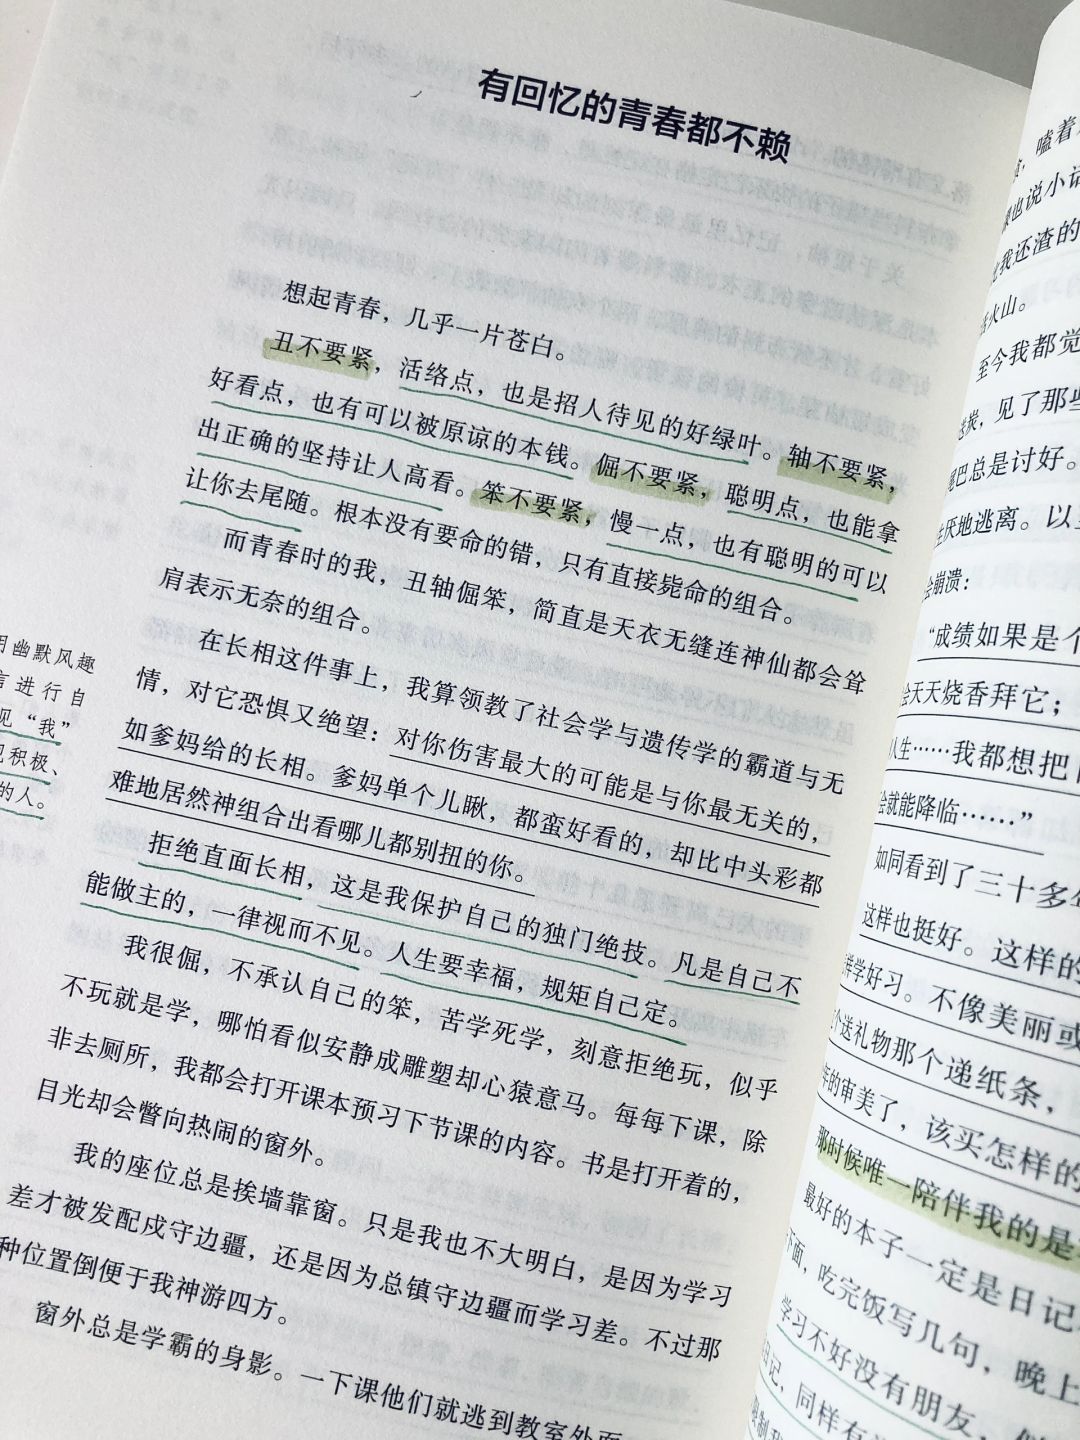 有回忆的青春都不赖
想起青春，几乎一片苍白。
丑不要紧，活络点，也是招人待见的好绿叶。轴不要紧，
好看点，也有可以被原谅的本钱。倔不要紧，聪明点，也能拿
出正确的坚持让人高看。笨不要紧，慢一点，也有聪明的可以
让你去尾随。根本没有要命的错，只有直接毙命的组合。
而青春时的我，丑轴倔笨，简直是天衣无缝连神仙都会耸
肩表示无奈的组合。
在长相这件事上，我算领教了社会学与遗传学的霸道与无
情，对它恐惧又绝望：对你伤害最大的可能是与你最无关的，
如爹妈给的长相。爹妈单个儿瞅，都蛮好看的，却比中头彩都
难地居然神组合出看哪儿都别扭的你。
拒绝直面长相，这是我保护自己的独门绝技。凡是自己不
能做主的，一律视而不见。人生要幸福，规矩自己定。
我很倔，不承认自己的笨，苦学死学，刻意拒绝玩，似乎
不玩就是学，哪怕看似安静成雕塑却心猿意马。每每下课，除
非去厕所，我都会打开课本预习下节课的内容。书是打开着的，
目光却会瞥向热闹的窗外。
我的座位总是挨墙靠窗。只是我也不大明白，是因为学习
差才被发配戍守边疆，还是因为总镇守边疆而学习差。不过那
种位置倒便于我神游四方。
窗外总是学霸的身影。一下课他们就逃到教室外面
用幽默风趣
言进行自
见“我”
积极、
的人。
嗑着
也说小话
我还渣的
火山。
至今我都觉
炭，见了那些
尾巴总是讨好。
厌地逃离。以
会崩溃：
“成绩如果是个
天天烧香拜它；
人生……我都想把
就能降临……”
如同看到了三十多年
这样也挺好。这样的
学好习。不像美丽或
个送礼物那个递纸条，
年的审美了，该买怎样的
那时候唯一陪伴我的是
最好的本子一定是日记
下面，吃完饭写几句，晚上
学习不好没有朋友，
日记，同样有
限制